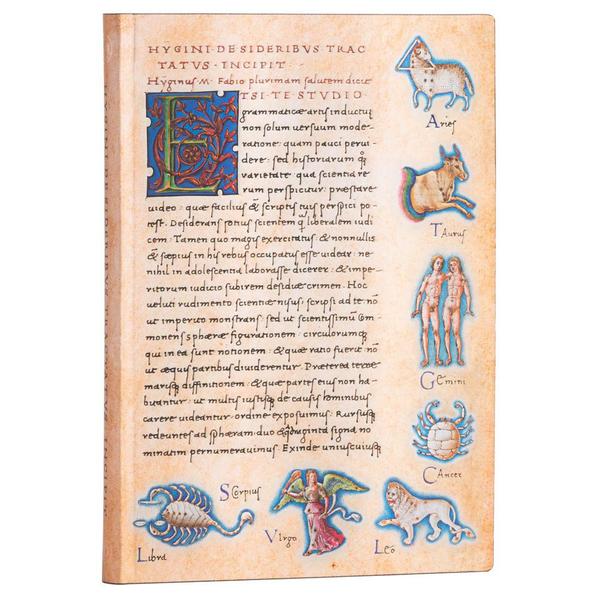 HYGINI·DE SIDERIBVS TRAC
TATVS·INCIPIT·
Hyginus·M·Fabio plurimam salutem dicit
ETSI·TE STVDIO·
grammaticæ artis inductū
non solum versuum mode-
ratione: quam pauci pervi-
dere: sed historiarum q̃
varietate: qua scientia re
rum perspicitur: præstare
video: quæ facilius & scriptis tuis perspici po-
test. Desiderans potius scientem q̃ liberalem iudi
cem: Tamen quo magis exercitatus: & nonnullis
& sæpius in his rebus occupatus esse videar: ne
nihil in adolescentia laborasse dicerer: & impe-
ritorum iudicio subirem desidiæ crimen. Hoc
veluti rudimento scientiæ nisus: scripsi ad te: nō
ut imperito monstrans: sed ut scientissimū Com-
monens: sphæræ figurationem: circulorumq̃
qui in ea sunt notionem: & quæ ratio fuerit: nō
ut æquis partibus dividerentur. Præterea terræ
marisq̃ diffinitionem: & quæ partes eius non ha-
buantur: ut multis iustisq̃ de causis hominibus
carere videantur: ordine exposuimus: Rursusq̃
redeuntes ad sphæram: duo & q̃draginta signa no
minatim pernumeravimus. Exinde uniuscuiusq̃
Aries
Taurus
Gemini
Cancer
Leo
Virgo
Scorpius
Libra